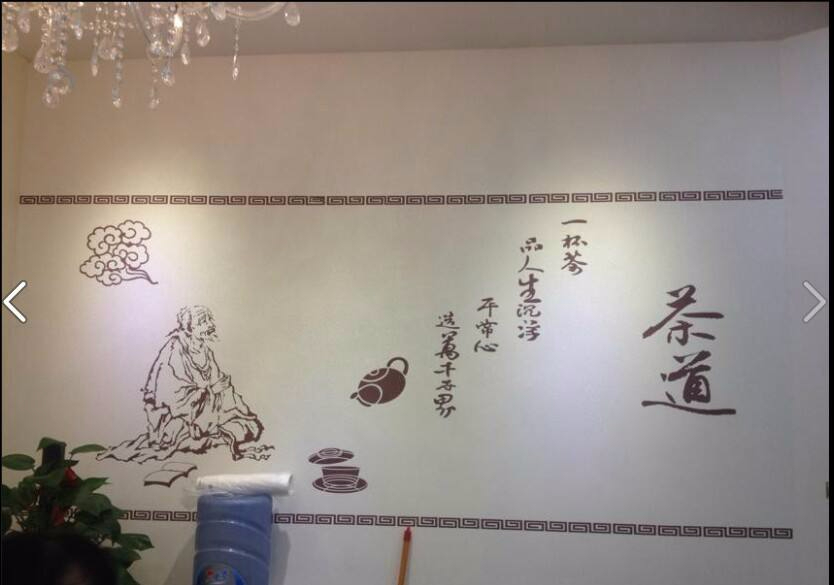 茶道
一杯茶
品人生沉浮
平常心
造萬千世界